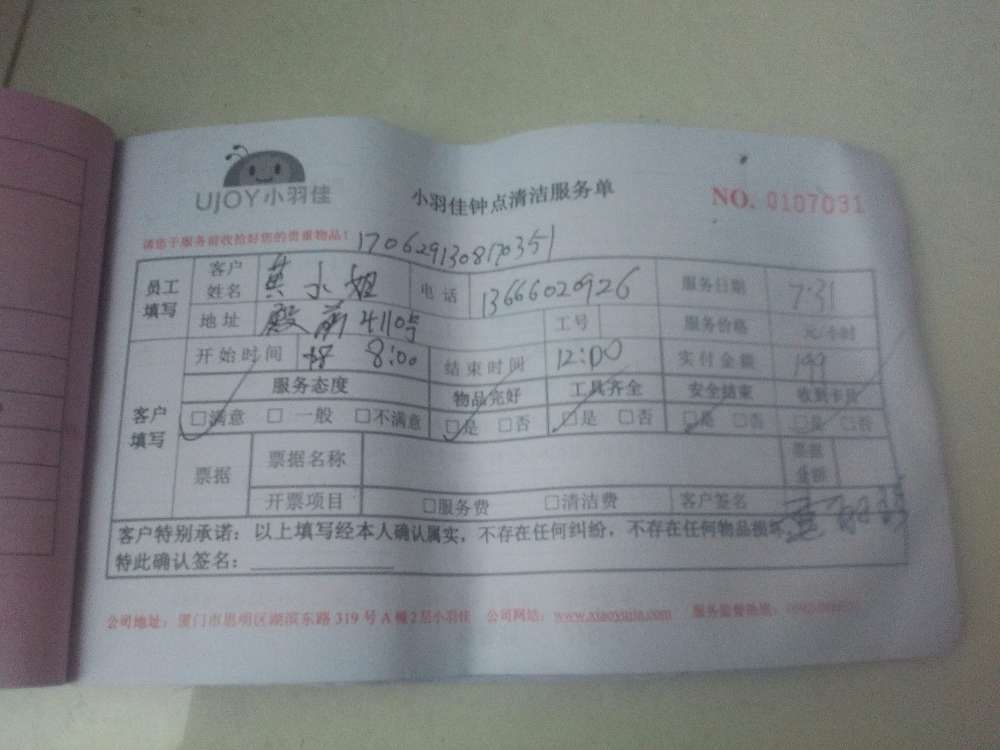 UJOY小羽佳
小羽佳钟点清洁服务单
NO. 0107031
请您于服务前收拾好您的贵重物品!
170629130870351
员工填写 客户姓名 黄小姐 电话 13666020926 服务日期 7.31
地址 殿前4110号 工号 服务价格 元/小时
客户填写 开始时间 8:00 结束时间 12:00 实付金额 149
服务态度 物品完好 工具齐全 安全结束 收到卡片
□满意 □一般 □不满意 □是 □否 □是 □否 □是 □否 □是 □否
票据 票据名称 票据金额
开票项目 □服务费 □清洁费 客户签名
客户特别承诺:以上填写经本人确认属实,不存在任何纠纷,不存在任何物品损坏
特此确认签名:
公司地址:厦门市思明区湖滨东路 319 号 A 幢 2 层小羽佳 公司网站:www.xiaoyujia.com 服务监督热线: